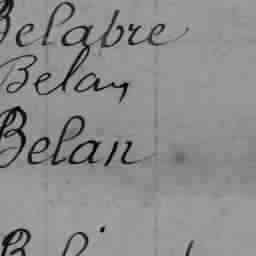 Belabre
Belay
Belan